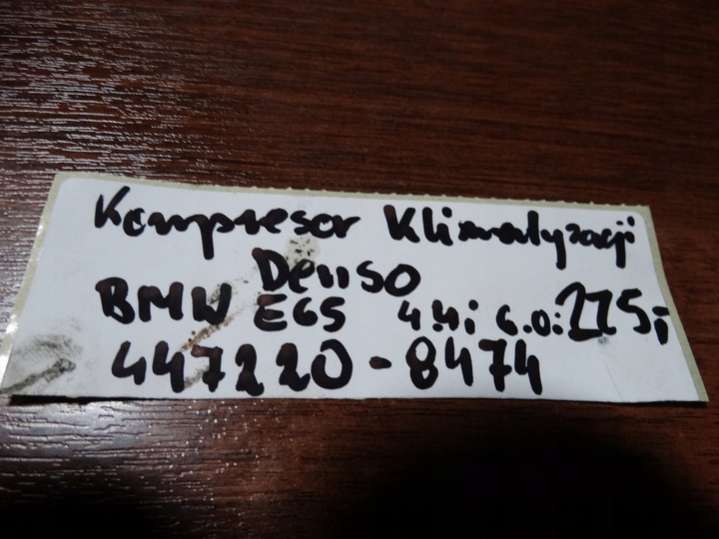 Kompresor Klimatyzacji
Denso
BMW E65 4.4i 6.0i 225,-
447220-8474